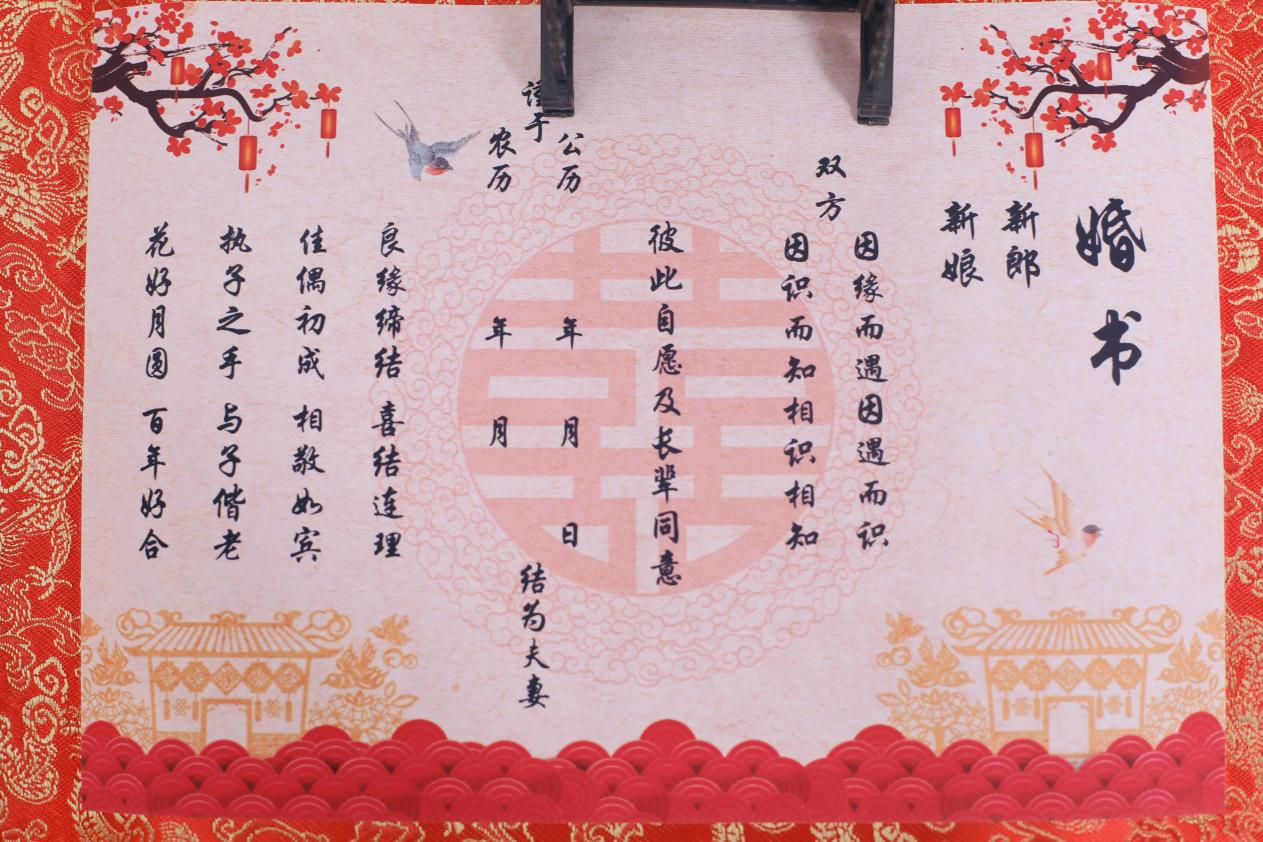 婚书
新郎
新娘
双方
因缘而遇因遇而识
因识而知相识相知
彼此自愿及长辈同意
谨于
公历 年 月 日
农历 年 月
结为夫妻
良缘缔结 喜结连理
佳偶初成 相敬如宾
执子之手 与子偕老
花好月圆 百年好合